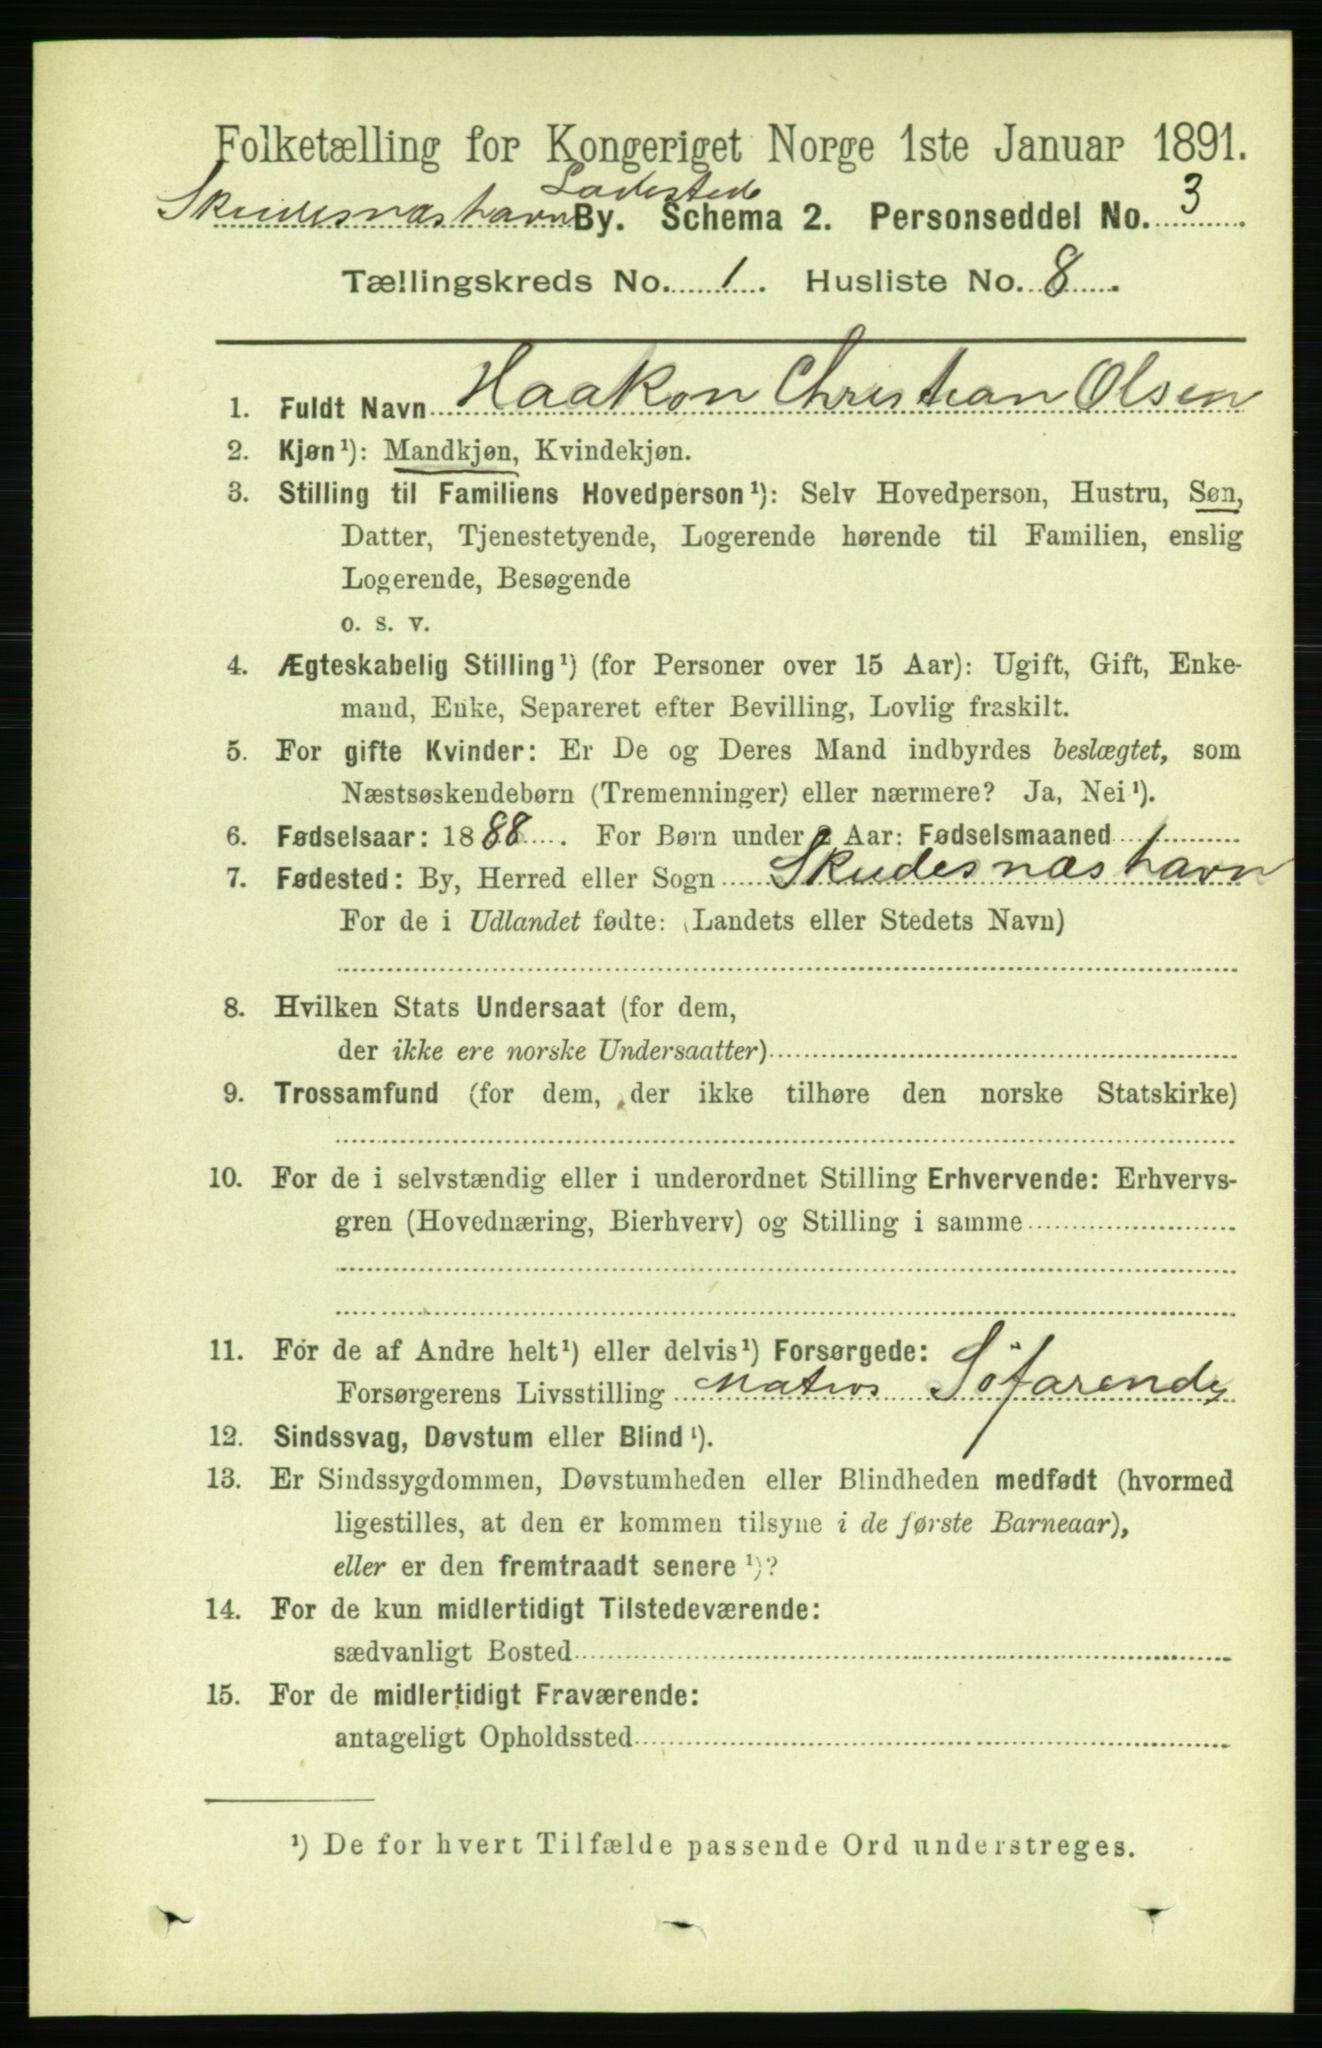 Folketælling for Kongeriget Norge 1ste Januar 1891.
Ladested
Skudesnæshavn By. Schema 2. Personseddel No. 3
Tællingskreds No. 1. Husliste No. 8.
1. Fuldt Navn Haakon Christian Olsen
2. Kjøn¹): Mandkjøn, Kvindekjøn.
3. Stilling til Familiens Hovedperson¹): Selv Hovedperson, Hustru, Søn,
Datter, Tjenestetyende, Logerende hørende til Familien, enslig
Logerende, Besøgende
o. s. v.
4. Ægteskabelig Stilling¹) (for Personer over 15 Aar): Ugift, Gift, Enke-
mand, Enke, Separeret efter Bevilling, Lovlig fraskilt.
5. For gifte Kvinder: Er De og Deres Mand indbyrdes beslægtet, som
Næstsøskendebørn (Tremenninger) eller nærmere? Ja, Nei¹).
6. Fødselsaar: 1888. For Børn under 2 Aar: Fødselsmaaned
7. Fødested: By, Herred eller Sogn Skudesnæshavn
For de i Udlandet fødte: (Landets eller Stedets Navn)
8. Hvilken Stats Undersaat (for dem,
der ikke ere norske Undersaatter)
9. Trossamfund (for dem, der ikke tilhøre den norske Statskirke)
10. For de i selvstændig eller i underordnet Stilling Erhvervende: Erhvervs-
gren (Hovednæring, Bierhverv) og Stilling i samme
11. For de af Andre helt¹) eller delvis¹) Forsørgede:
Forsørgerens Livsstilling Matros Söfarende
12. Sindssvag, Døvstum eller Blind¹).
13. Er Sindssygdommen, Døvstumheden eller Blindheden medfødt (hvormed
ligestilles, at den er kommen tilsyne i de første Barneaar),
eller er den fremtraadt senere¹)?
14. For de kun midlertidigt Tilstedeværende:
sædvanligt Bosted
15. For de midlertidigt Fraværende:
antageligt Opholdssted
¹) De for hvert Tilfælde passende Ord understreges.